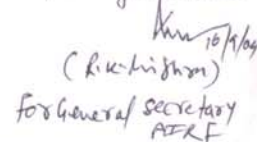 16/9/09
(R.K. Mishra)
For General Secretary
AIRF